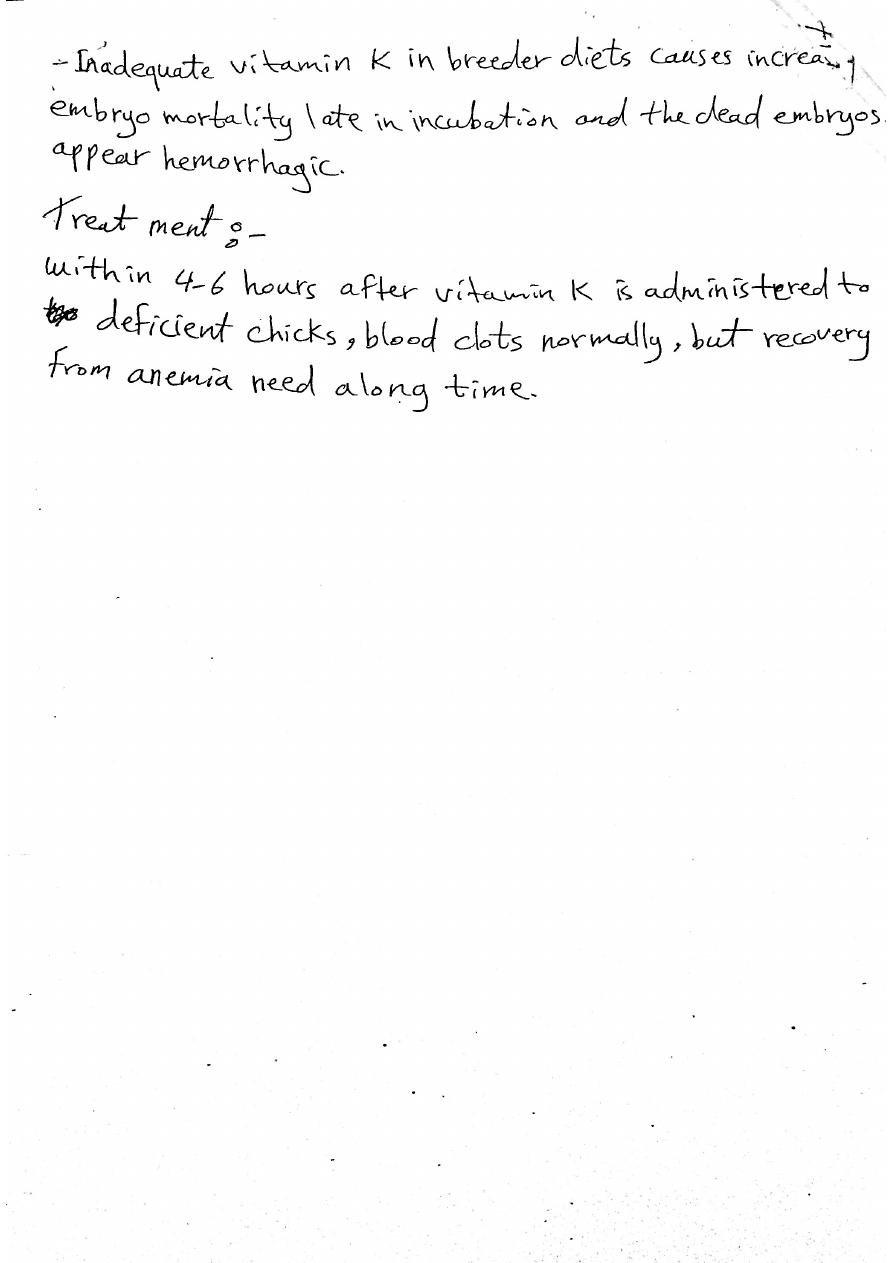 - Inadequate vitamin K in breeder diets causes increasing
embryo mortality late in incubation and the dead embryos.
appear hemorrhagic.
Treat ment :-
within 4-6 hours after vitamin K is administered to
deficient chicks, blood clots normally, but recovery
from anemia need along time.